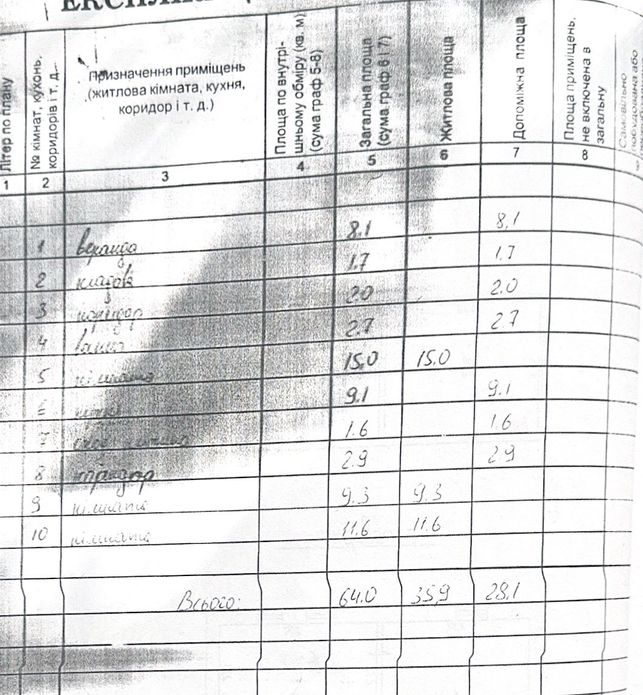 Літер по плану
№ кімнат, кухонь, коридорів і т. д.
Призначення приміщень
(житлова кімната, кухня,
коридор і т. д.)
Площа по внутрі-
шньому обміру (кв. м)
(сума граф 5-8)
Загальна площа
(сума граф 6 і 7)
Житлова площа
Допоміжна площа
Площа приміщень,
не включена в
загальну
Самовільно
побудована або
1 2 3 4 5 6 7 8
1 веранда 8,1 8,1
2 кладов 1.7 1.7
3 коридор 2.0 2.0
4 ванна 2.7 2.7
5 кімната 15.0 15.0
6 кухня 9.1 9.1
7 1.6 1.6
8 коридор 2.9 2.9
9 кімната 9.3 9.3
10 кімната 11.6 11.6
Всього: 64.0 35,9 28,1